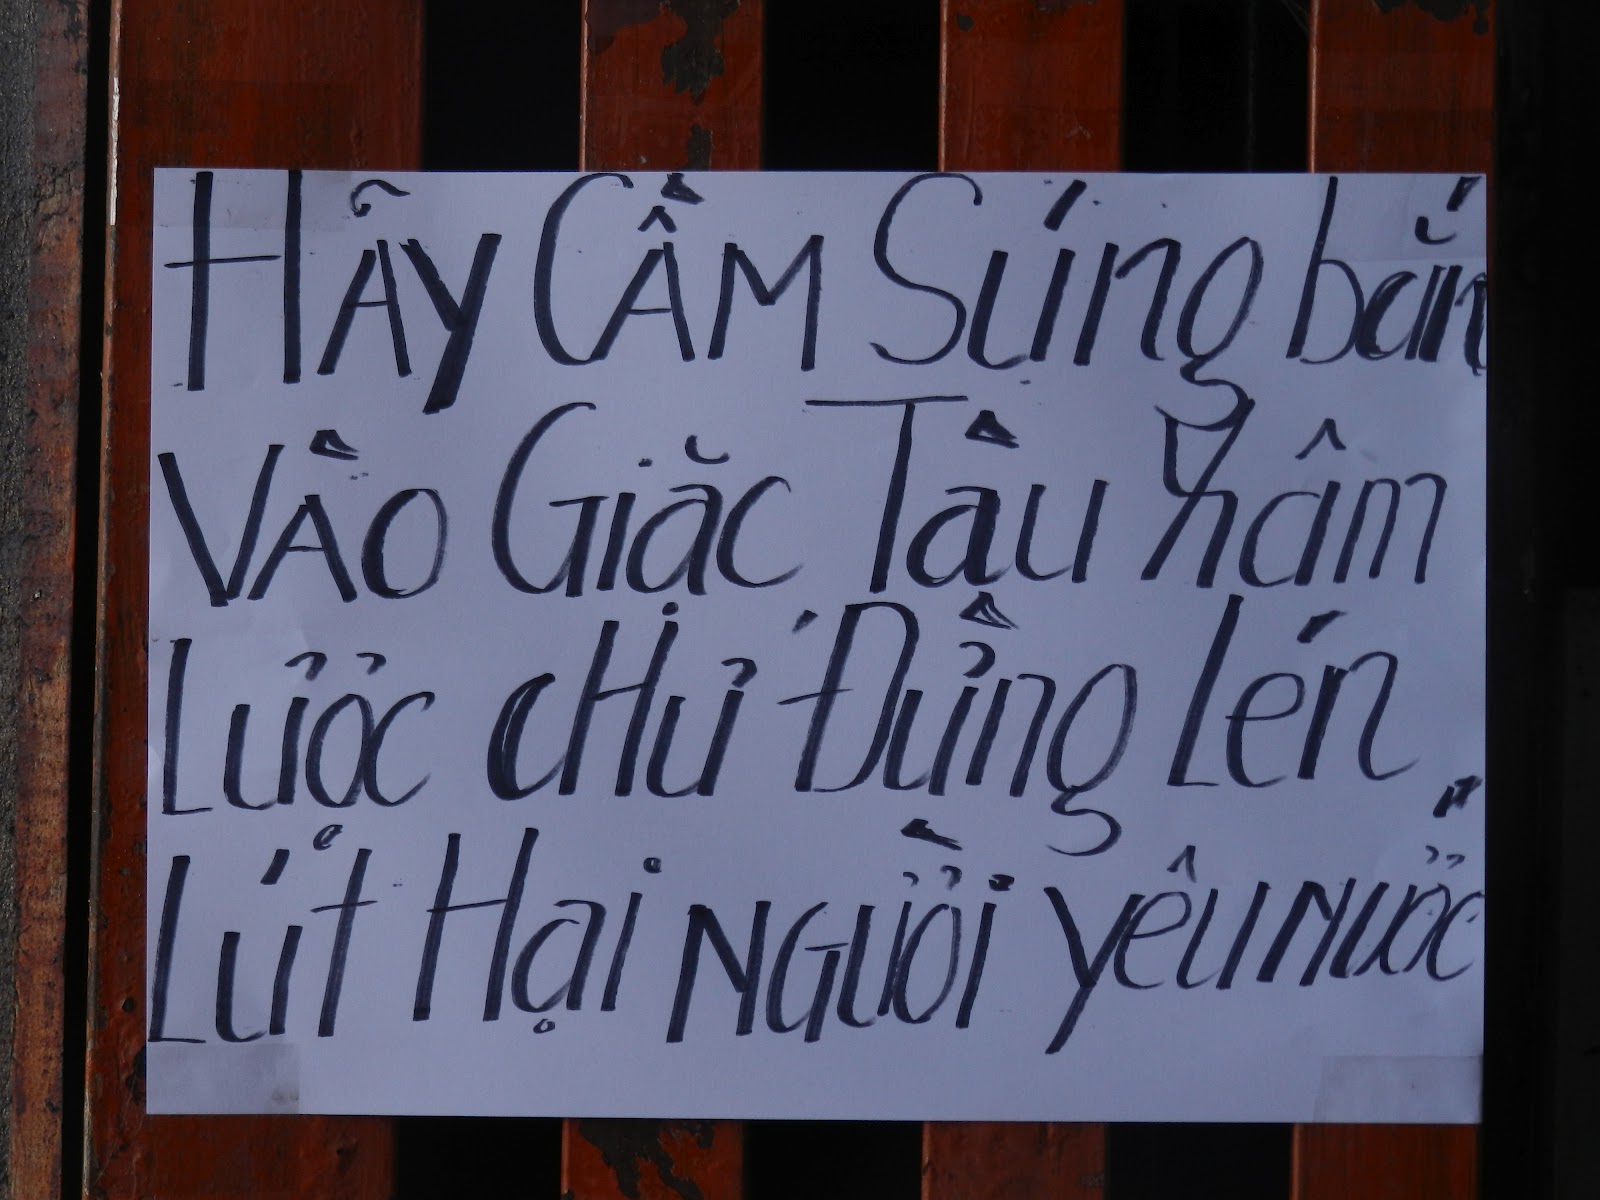 HÃY CẦM Súng bắn
VÀO GIặc Tầu Xâm
Lược cHứ Đừng Lén
Lút Hại NGƯời yêu NƯớc